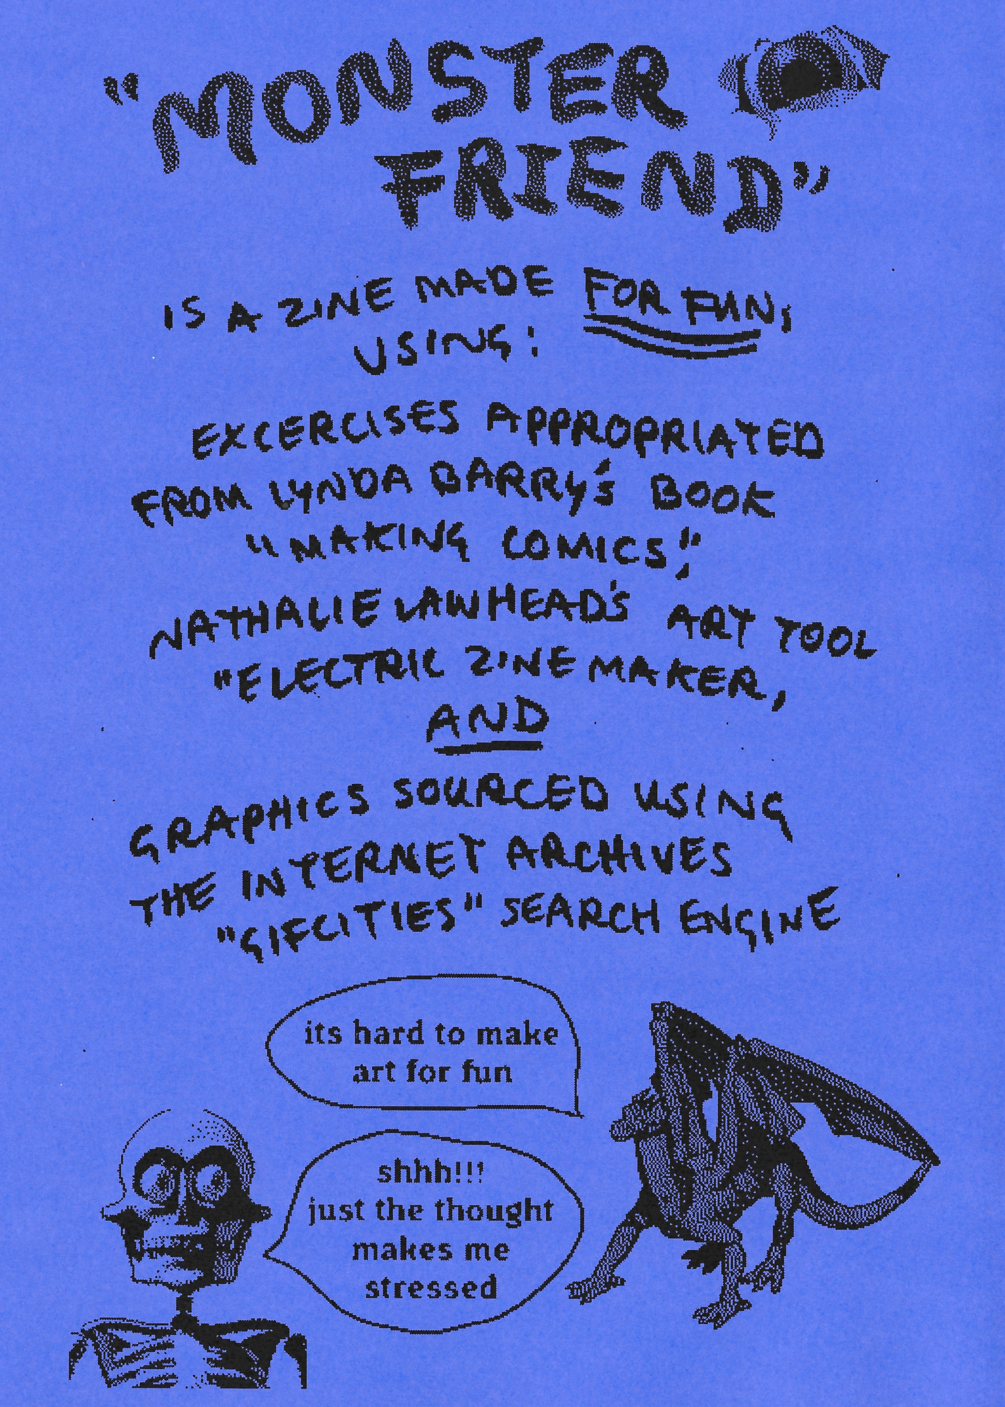 "MONSTER
FRIEND"
IS A ZINE MADE FOR FUN,
USING:
EXCERCISES APPROPRIATED
FROM LYNDA BARRY'S BOOK
"MAKING COMICS,"
NATHALIE LAWHEAD'S ART TOOL
"ELECTRIC ZINE MAKER,
AND
GRAPHICS SOURCED USING
THE INTERNET ARCHIVES
"GIFCITIES" SEARCH ENGINE
its hard to make
art for fun
shhh!!!
just the thought
makes me
stressed